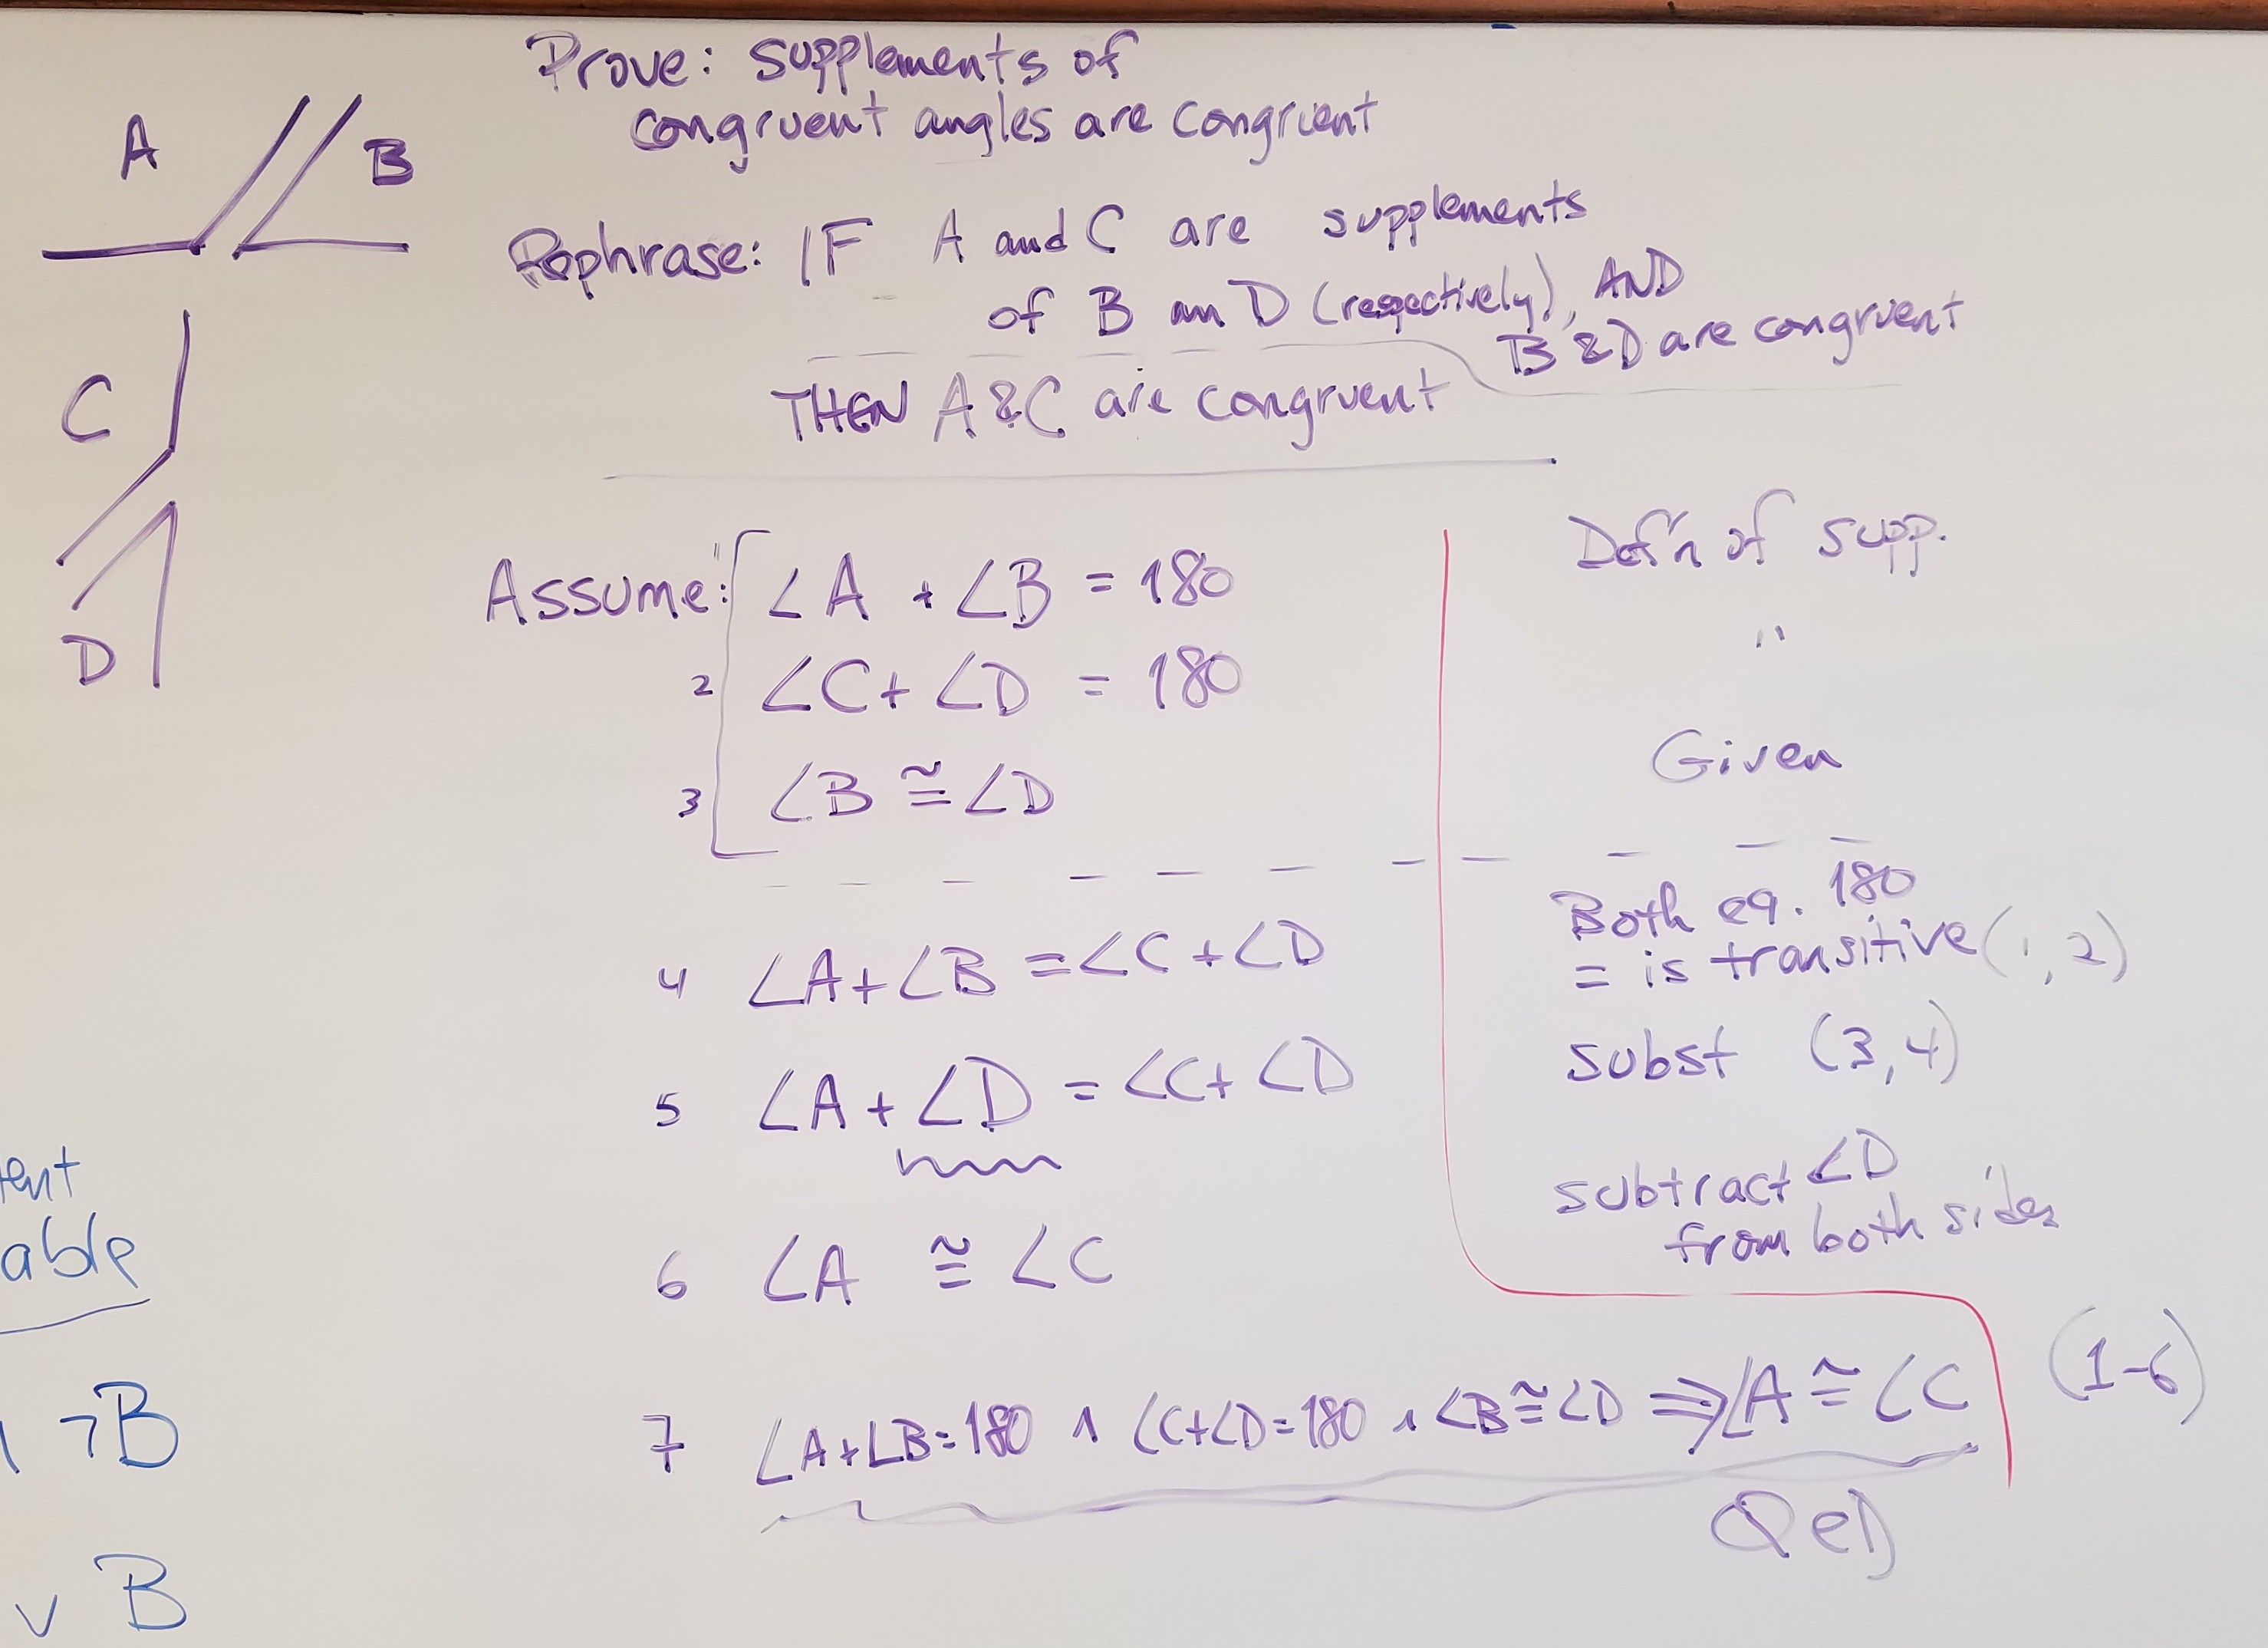 Prove: supplements of
congruent angles are congruent
A
B
Rephrase: IF A and C are supplements
of B an D (respectively), AND
B & D are congruent
THEN A & C are congruent
C
D
Assume: 1 ∠A + ∠B = 180 Def'n of supp.
2 ∠C + ∠D = 180 "
3 ∠B ≅ ∠D Given
4 ∠A + ∠B = ∠C + ∠D Both eq. 180
= is transitive (1, 2)
5 ∠A + ∠D = ∠C + ∠D subst (3,4)
subtract ∠D
from both sides
6 ∠A ≅ ∠C
7 ∠A+∠B=180 ∧ ∠C+∠D=180 ∧ ∠B≅∠D ⇒ ∠A ≅ ∠C (1-6)
QED
ent
able
¬B
∨ B